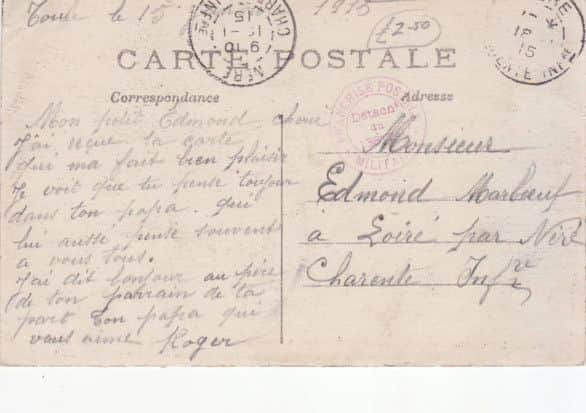 Toul le 15 1915
£2-50
CARTE POSTALE
Correspondance
Adresse
Mon petit Edmond cherie
J'ai reçue ta carte
qui ma fait bien plaisir
Je voit que tu pense toujour
dans ton papa. qui
lui aussé pense souvent
a vous tous.
J'ai dit bonjour au père
de ton parrain de ta
part ton papa qui
vous aime Roger
Monsieur
Edmond Marboeuf
à Loiré par Néré
Charente Infre
NÉRÉ
CHARENTE INFRE
TRÉSORERIE POSTES
Détachnt
MILITAIRE